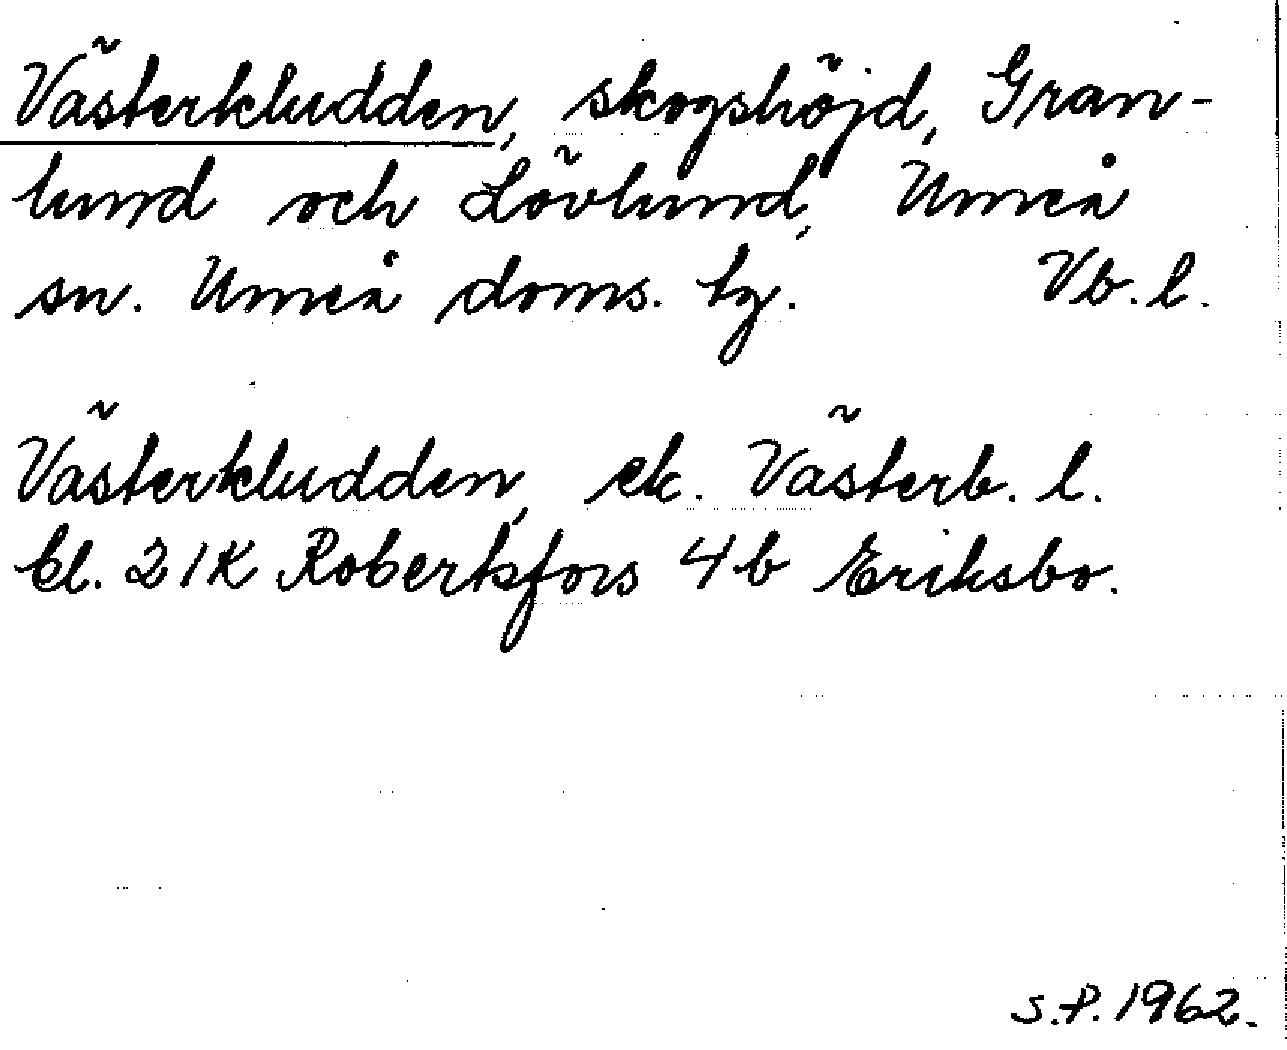 Västerkludden, skogshöjd, Gran-
lund och Lövlund, Umeå
sn. Umeå doms. tg. Vb. l.
Västerkludden, ek. Västerb. l.
bl. 21K Robertsfors 4b Eriksbo.
S.P. 1962.